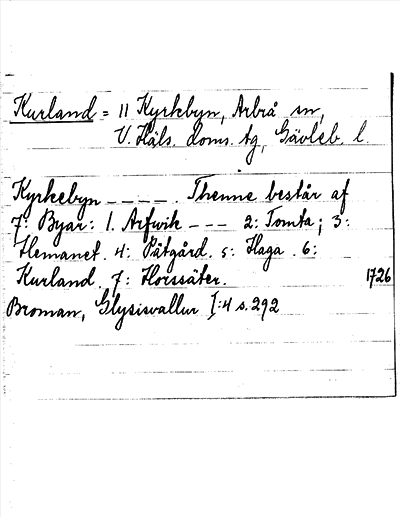 Kurland = 11 Kyrkebyn, Arbrå sn,
V. Häls. doms. tg, Gävleb. l.
Kyrkebyn - - - - . Thenne består af
7: Byar: 1. Arfwik - - - 2: Tomta; 3:
Hemanet. 4: Pätgård. 5: Haga . 6:
Kurland. 7: Horssäter. 1726
Broman, Glysisvallur I:4 s. 292